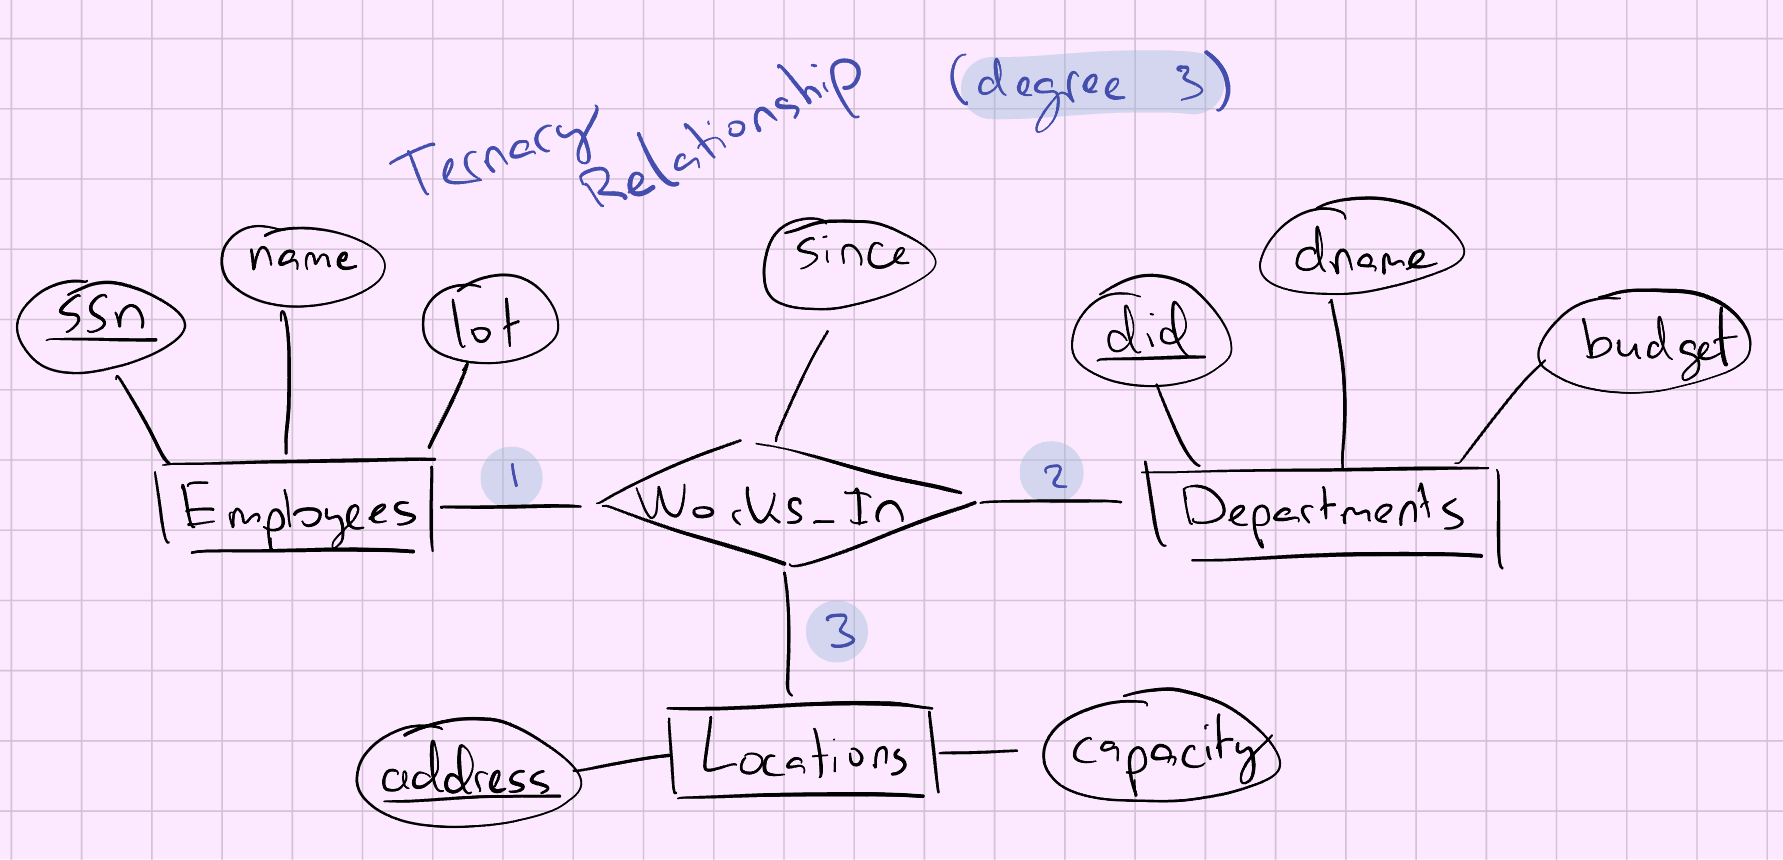 Ternary Relationship (degree 3)
ssn
name
lot
since
did
dname
budget
Employees
1
Works_In
2
Departments
3
address
Locations
capacity